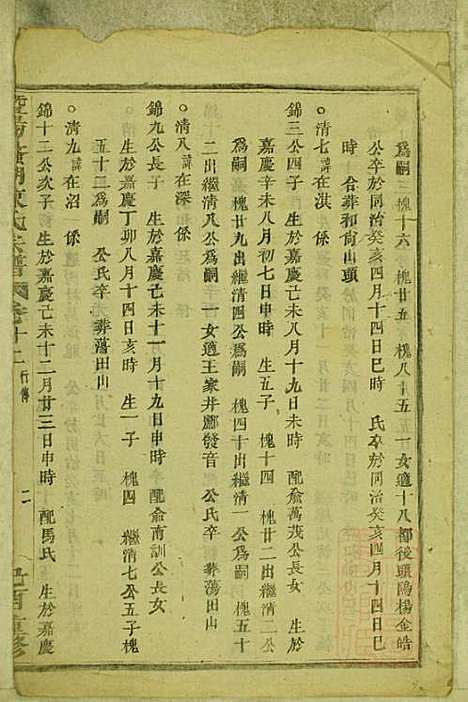 為嗣 三槐十六 槐廿五 槐八十五 一女適十八都後頭塢楊金皓
公卒於同治癸亥四月十四日巳時 氏卒於同治癸亥四月十四日巳
時 合葬和尚山頭
○清七 諱在淇 係
錦三公四子 生於嘉慶己未八月十九日未時 配俞萬茂公長女 生於
嘉慶辛未八月初七日申時 生五子 槐十四 槐廿二出繼清二公
為嗣 槐廿九出繼清四公為嗣 槐四十出繼清一公為嗣 槐五十
二出繼清八公為嗣 一女適王家井酈發音 公氏卒 葬蕩田山
○清八 諱在深 係
錦九公長子 生於嘉慶己未十一月十九日申時 配俞南訓公長女
生於嘉慶丁卯八月十四日亥時 生一子 槐四 繼清七公五子槐
五十二為嗣 公氏卒 葬蕩田山
○清九 諱在沼 係
錦十二公次子 生於嘉慶己未十二月廿三日申時 配馬氏 生於嘉慶
暨陽 湖陳氏宗譜 卷十二 行傳 二 重修